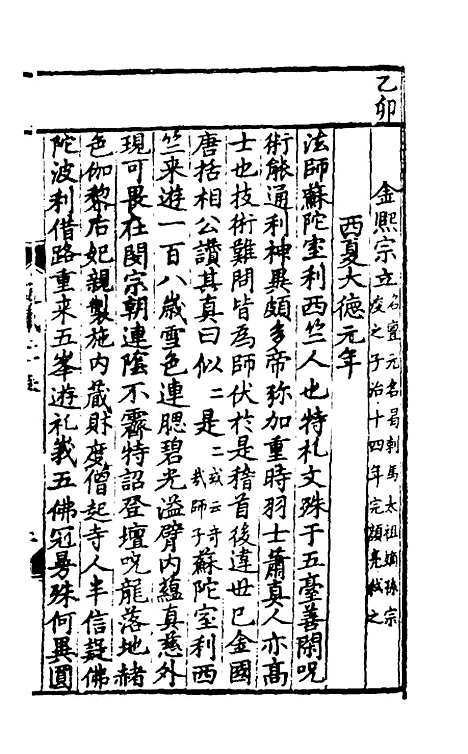 乙卯
金熙宗立名亶元名曷剌馬太祖嫡孫宗
峻之子治十四年完顏亮弒之
西夏大德元年
法師蘇陀室利西竺人也特札文殊于五臺善閑咒
術能通利神異頗多帝弥加重時羽士蕭真人亦高
士也技術難問皆為師伏於是稽首後違世巳金國
唐括相公讚其真曰似二是二或云奇
哉師子蘇陀室利西
竺来遊一百八歲雪色連腮碧光溢臂内蘊真慈外
現可畏在閔宗朝連陰不霽特詔登壇咒龍落地赭
色伽黎后妃親製施内藏財度僧起寺人半信疑佛
陀波利借路重来五峯遊礼峩五佛冠曼殊何異圓